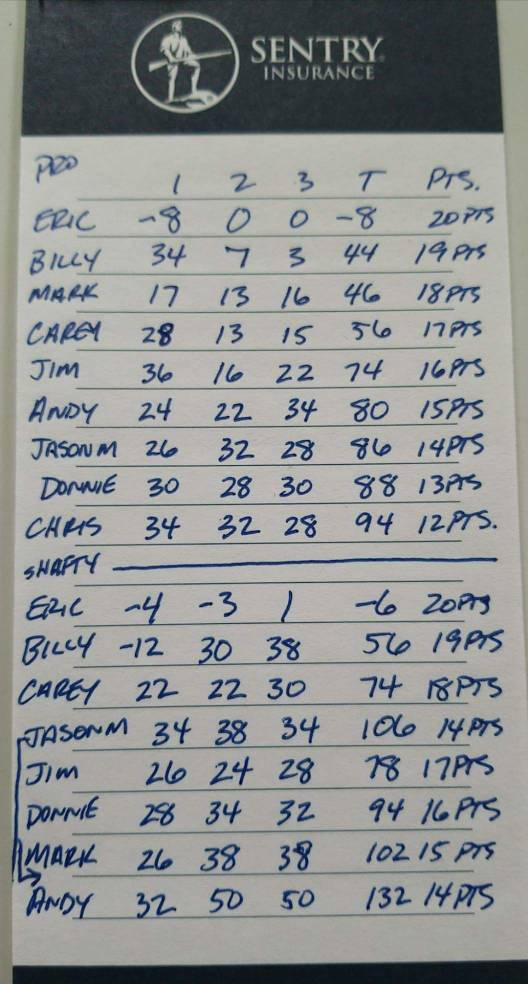 SENTRY
INSURANCE
PRO
1 2 3 T PTS.
ERIC -8 0 0 -8 20 PTS
BILLY 34 7 3 44 19 PTS
MARK 17 13 16 46 18 PTS
CAREY 28 13 15 56 17 PTS
JIM 36 16 22 74 16 PTS
ANDY 24 22 34 80 15 PTS
JASON M 26 32 28 86 14 PTS
DONNIE 30 28 30 88 13 PTS
CHRIS 34 32 28 94 12 PTS.
SHAFTY
ERIC -4 -3 1 -6 20 PTS
BILLY -12 30 38 56 19 PTS
CAREY 22 22 30 74 18 PTS
JASON M 34 38 34 106 14 PTS
JIM 26 24 28 78 17 PTS
DONNIE 28 34 32 94 16 PTS
MARK 26 38 38 102 15 PTS
ANDY 32 50 50 132 14 PTS